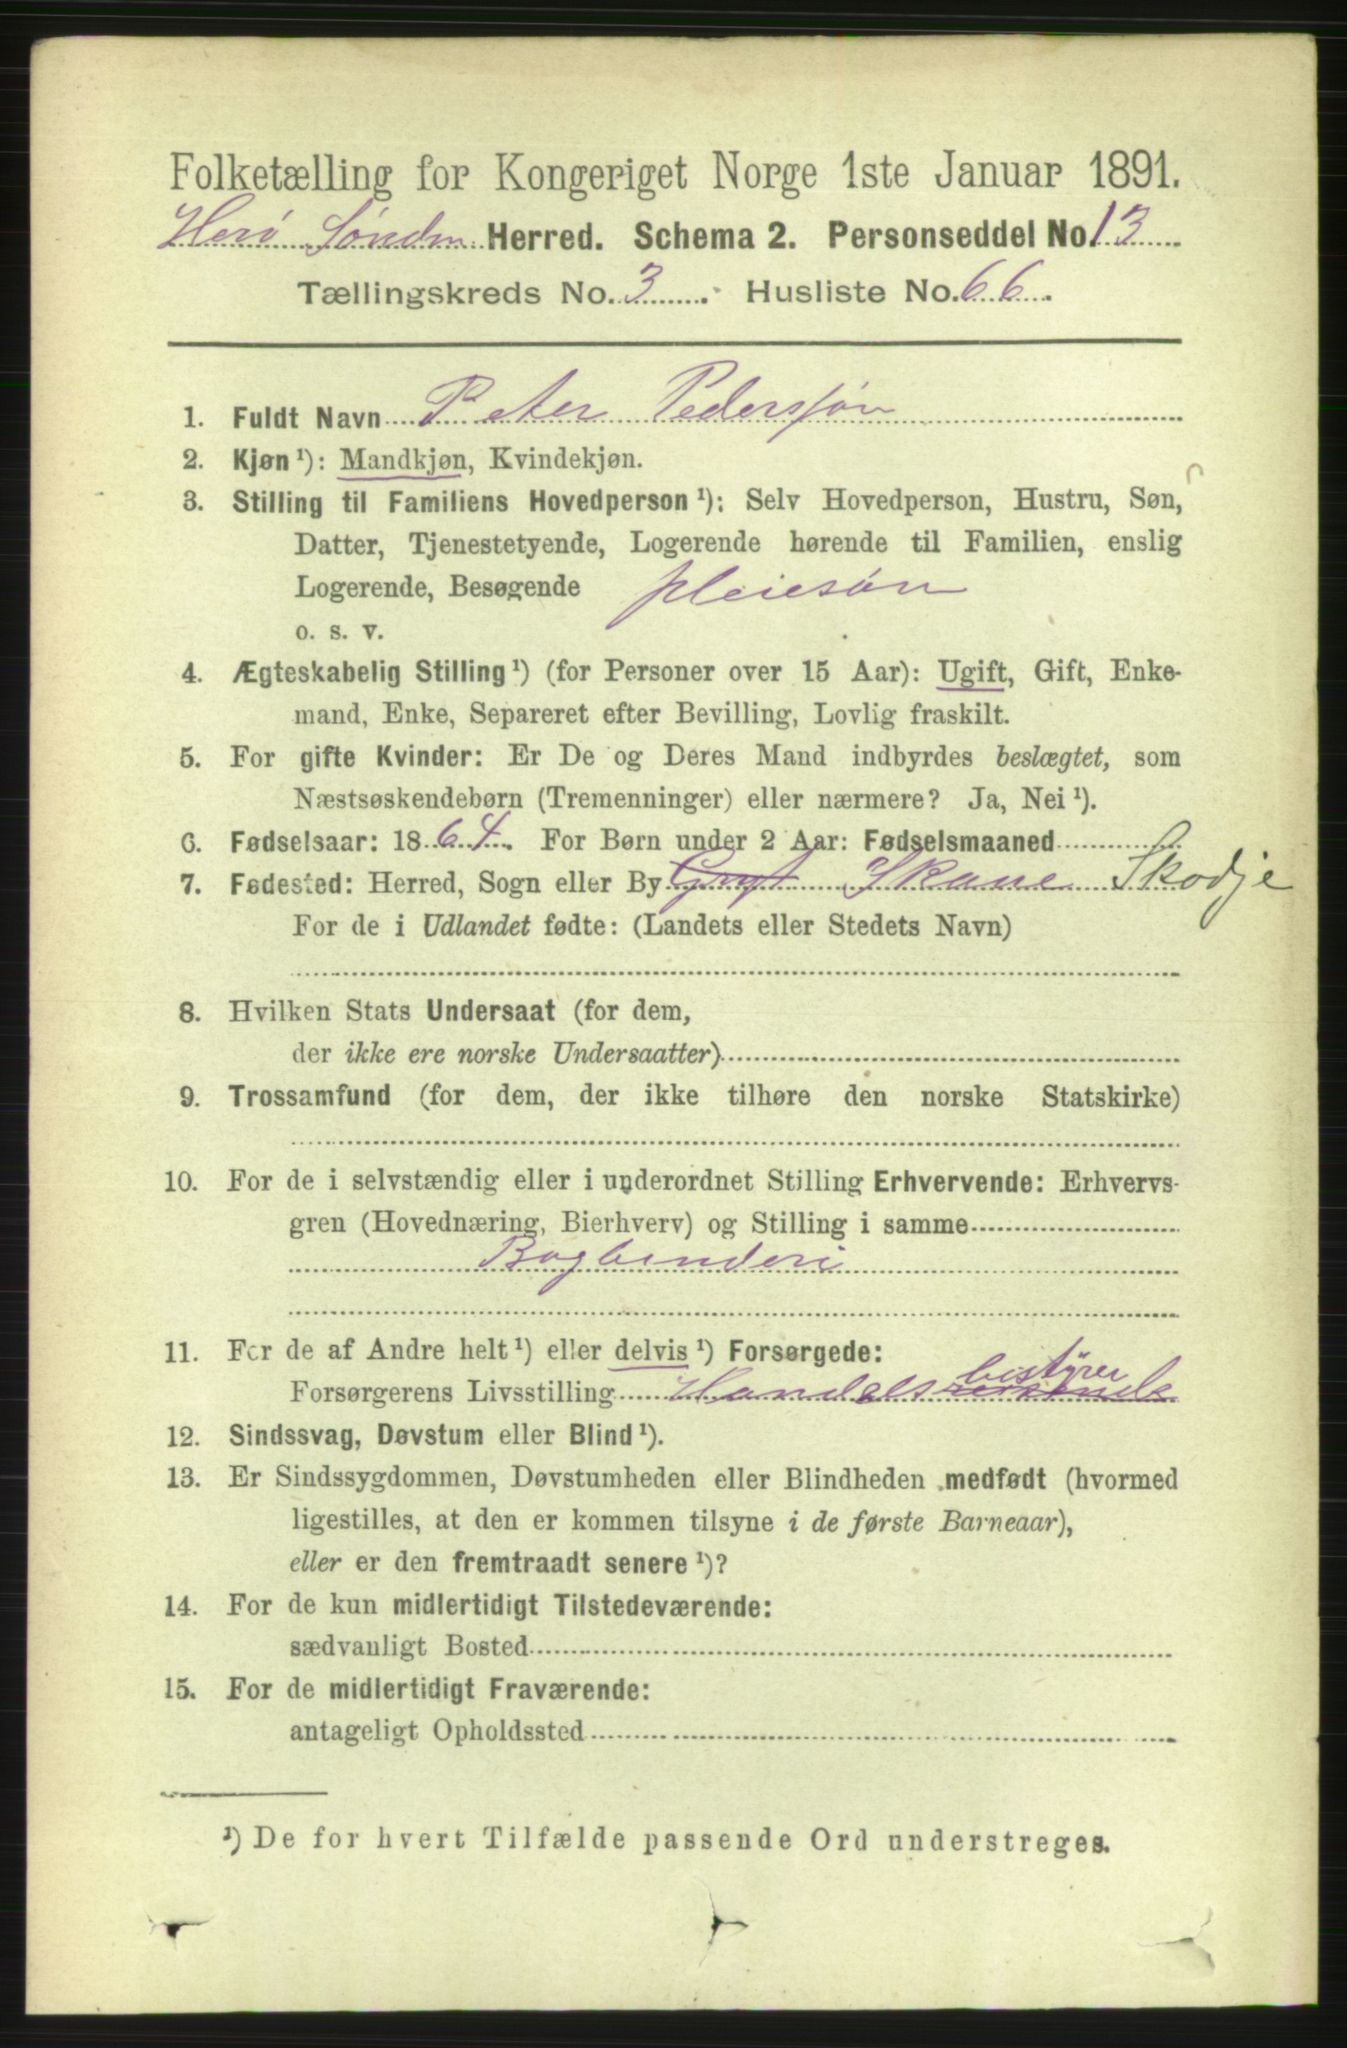 Folketælling for Kongeriget Norge 1ste Januar 1891.
Herø Søndm Herred. Schema 2. Personseddel No. 13
Tællingskreds No. 3. Husliste No. 66.
1. Fuldt Navn Peter Pederssøn
2. Kjøn ¹): Mandkjøn, Kvindekjøn.
3. Stilling til Familiens Hovedperson ¹): Selv Hovedperson, Hustru, Søn,
Datter, Tjenestetyende, Logerende hørende til Familien, enslig
Logerende, Besøgende pleiesøn
o. s. v.
4. Ægteskabelig Stilling ¹) (for Personer over 15 Aar): Ugift, Gift, Enke-
mand, Enke, Separeret efter Bevilling, Lovlig fraskilt.
5. For gifte Kvinder: Er De og Deres Mand indbyrdes beslægtet, som
Næstsøskendebørn (Tremenninger) eller nærmere? Ja, Nei ¹).
6. Fødselsaar: 1864. For Børn under 2 Aar: Fødselsmaaned
7. Fødested: Herred, Sogn eller By Skaue Skodje
For de i Udlandet fødte: (Landets eller Stedets Navn)
8. Hvilken Stats Undersaat (for dem,
der ikke ere norske Undersaatter)
9. Trossamfund (for dem, der ikke tilhøre den norske Statskirke)
10. For de i selvstændig eller i underordnet Stilling Erhvervende: Erhvervs-
gren (Hovednæring, Bierhverv) og Stilling i samme
Bogbinderi
11. For de af Andre helt ¹) eller delvis ¹) Forsørgede:
Forsørgerens Livsstilling Handelsbestyrer
12. Sindssvag, Døvstum eller Blind ¹).
13. Er Sindssygdommen, Døvstumheden eller Blindheden medfødt (hvormed
ligestilles, at den er kommen tilsyne i de første Barneaar),
eller er den fremtraadt senere ¹)?
14. For de kun midlertidigt Tilstedeværende:
sædvanligt Bosted
15. For de midlertidigt Fraværende:
antageligt Opholdssted
¹) De for hvert Tilfælde passende Ord understreges.